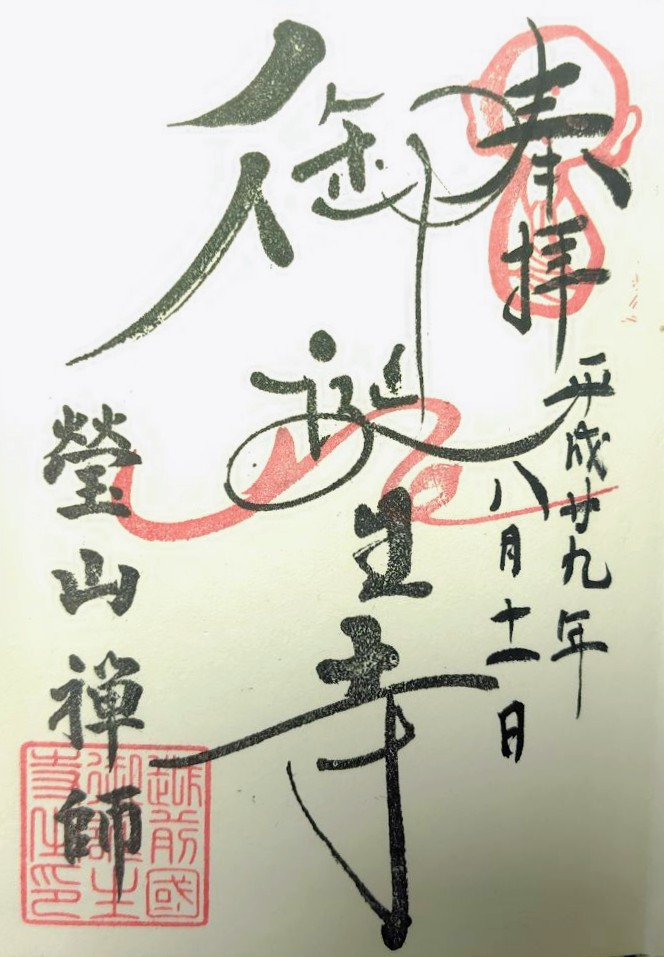 奉拝
平成廿九年
八月十一日
御誕生寺
瑩山禅師
越前國
御誕生
寺住印